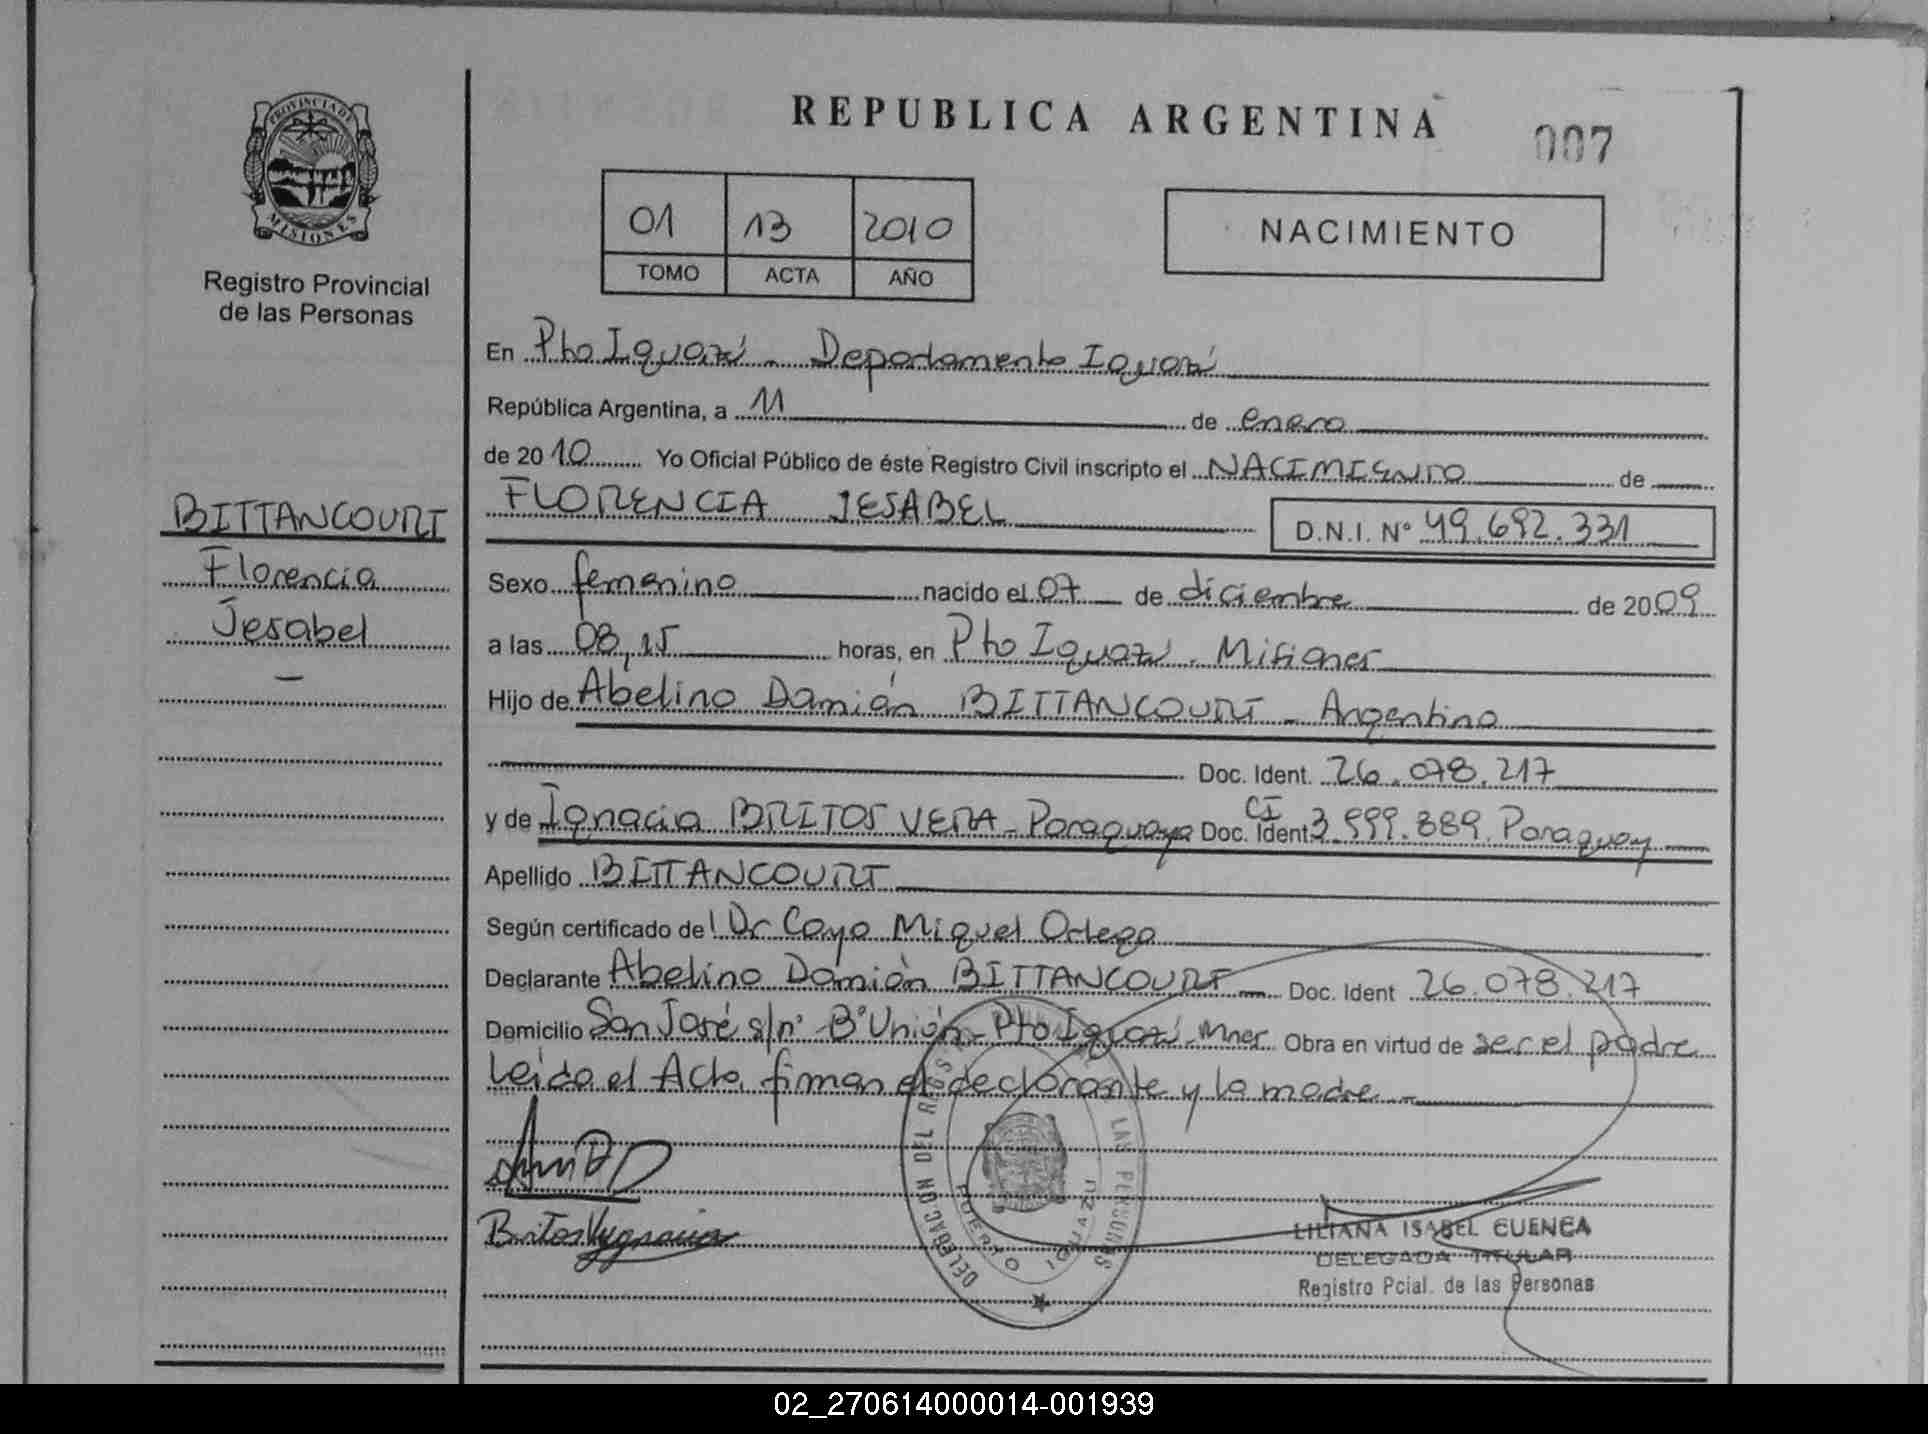 PROVINCIA DE
MISIONES
Registro Provincial
de las Personas
BITTANCOURT
Florencia
Jesabel
REPUBLICA ARGENTINA
007
01 13 2010
TOMO ACTA AÑO
NACIMIENTO
En Pto Iguazú - Departamento Iguazú
República Argentina, a 11 de enero
de 2010 Yo Oficial Público de éste Registro Civil inscripto el NACIMIENTO de
FLORENCIA JESABEL D.N.I. Nº 49.692.331
Sexo femenino nacido el 07 de diciembre de 2009
a las 08,15 horas, en Pto Iguazú. Misiones
Hijo de Abelino Damián BITTANCOURT - Argentino
Doc. Ident. 26.078.217
y de Ignacia BRITOS VERA - Paraguaya Doc. Ident CI 3.999.889. Paraguay
Apellido BITTANCOURT
Según certificado del Dr Cayo Miguel Ortega
Declarante Abelino Damián BITTANCOURT - Doc. Ident 26.078.217
Domicilio San José s/nº Bº Unión - Pto Iguazú. Mnes. Obra en virtud de ser el padre
Leída el Acta, firman el declarante y la madre. -
DELEGACION DEL LAS PERSONAS
PUERTO IGUAZU
Britos V Ygnacia
LILIANA ISABEL CUENCA
DELEGADA TITULAR
Registro Pcial. de las Personas
02_270614000014-001939